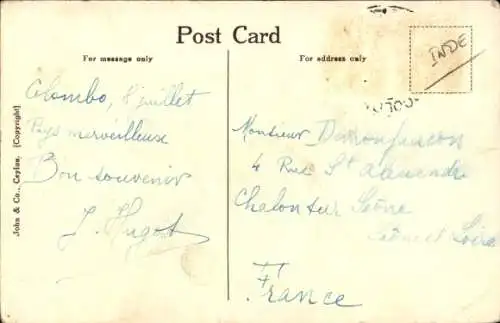 Post Card
For message only
For address only
INDE
John & Co., Ceylon. [Copyright]
Colombo, 8 juillet
Pays merveilleuse
Bon souvenir
J. Hugot
Monsieur
4 Rue St
Chalon sur Saône
Saône et Loire
France